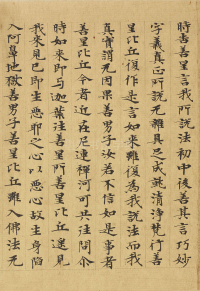 時善星言我所說法初中後善其言巧妙
字義真正所說无雜具足成就清淨梵行善
星比丘復作是言如來雖復為我說法而我
真實謂无因果善男子汝若不信如是事者
善星比丘今者近在尼連禪河可共往問尒
時如來即与迦葉往善星所善星比丘遙見
我來見已即生惡耶之心以惡心故生身陷
入阿鼻地獄善男子善星比丘雖入佛法无